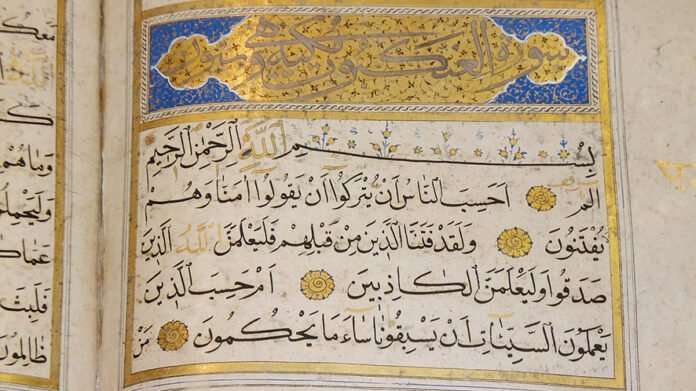 سورة العنكبوت مكية وهى
بِسْمِ اللّٰهِ الرَّحْمٰنِ الرَّحِيمِ
الم اَحَسِبَ النَّاسُ اَنْ يُتْرَكُوا اَنْ يَقُولُوا اٰمَنَّا وَهُمْ
لَا يُفْتَنُونَ وَلَقَدْ فَتَنَّا الَّذِينَ مِنْ قَبْلِهِمْ فَلَيَعْلَمَنَّ اللّٰهُ الَّذِينَ
صَدَقُوا وَلَيَعْلَمَنَّ الْكَاذِبِينَ اَمْ حَسِبَ الَّذِينَ
يَعْمَلُونَ السَّيِّئَاتِ اَنْ يَسْبِقُونَا سَاءَ مَا يَحْكُمُونَ مَنْ
وَمَا هُمْ
فَلَبِثَ
ظَالِمُونَ